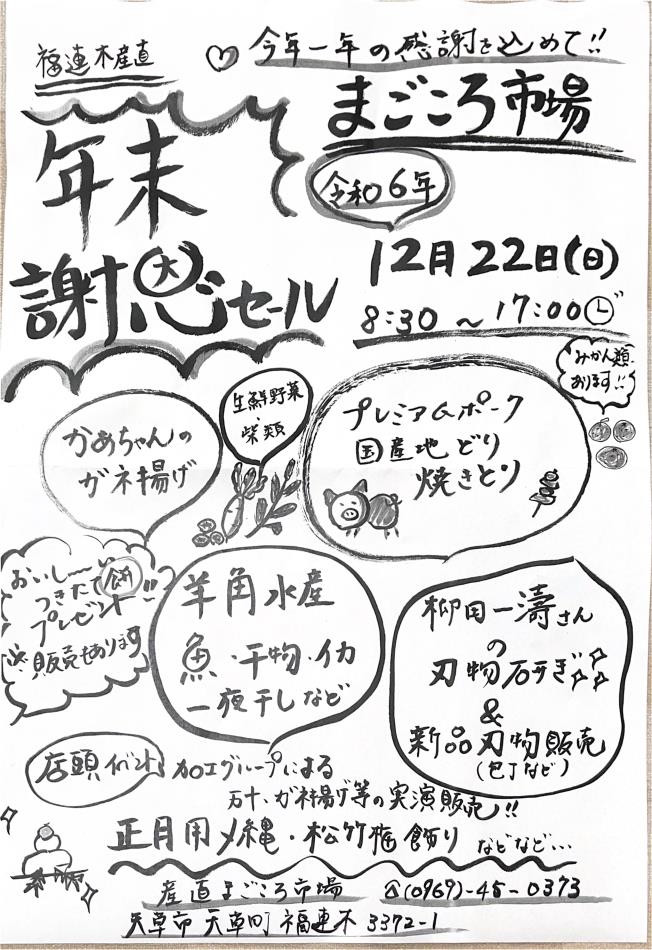 福連木産直
♡今年一年の感謝を込めて!!
まごころ市場
年末
謝恩セール
令和6年
12月22日(日)
8:30～17:00
みかん類
おります!!
生鮮野菜・
柴類
かあちゃんの
ガネ揚げ
プレミアムポーク
国産地どり
焼きとり
おいし〜〜
つきたて餅!!
プレゼント
※販売もあります
羊角水産
魚・干物・イカ
一夜干しなど
柳田一濤さん
の
刃物研ぎ
&
新品刃物販売
(包丁など)
店頭イベント 加工グループによる
ガネ揚げ等の実演販売!!
正月用〆縄・松竹梅飾り などなど…
産直まごころ市場 ☎(0969)-45-0373
天草市天草町福連木3372-1